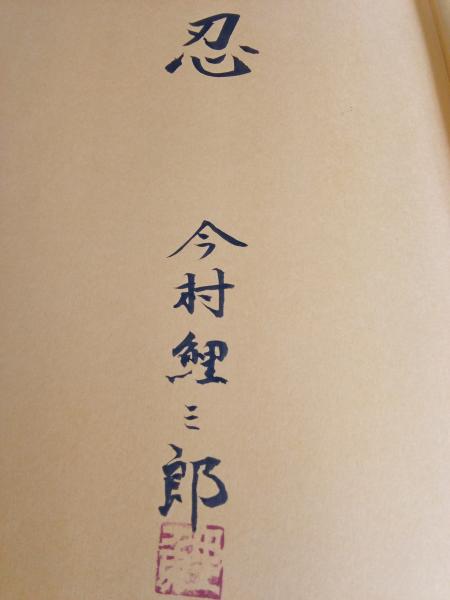 忍
今村鯉三郎